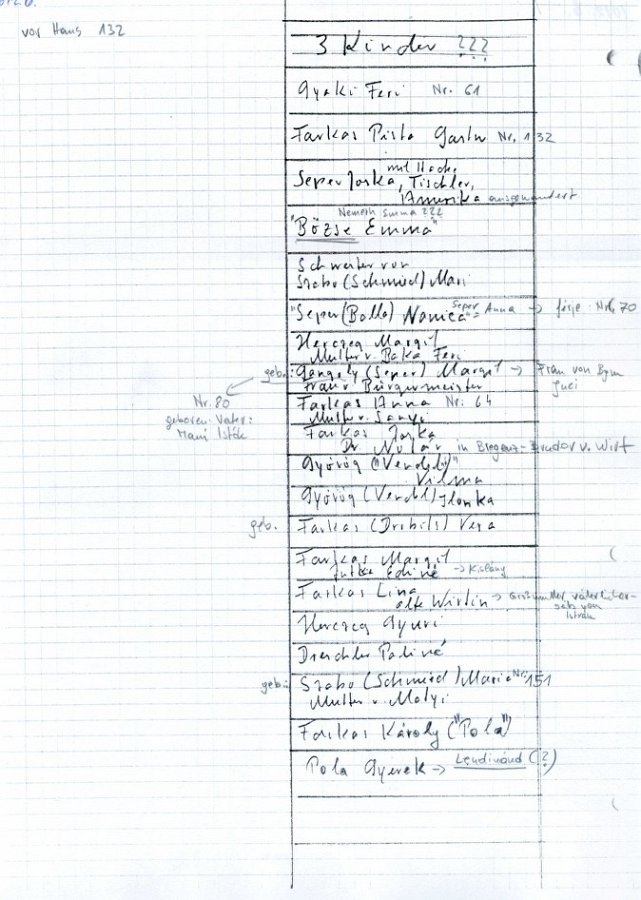 vor Haus 132
3 Kinder ???
Gyaki Feri Nr. 61
Farkas Pista Gastw Nr. 132
mit Hack.
Seper Joska, Tischler,
Amerika ausgewandert
Nemeth Emma ???
"Bözse Emma"
Schwester von
Szabo (Schmied) Mari
"Seper (Balla) Nanica" = Seper Anna → férje: Nr. 70
Herczeg Margit
Mutter v. Baka Feri
geb.: Gangely (Seper) Margit → Frau von
Frau v. Bürgermeister
Nr. 80
geboren. Vater:
Farkas Anna Nr. 64
Mutter v. Sanyi
Farkas Joska
Dr Notar in Bregenz - Bruder v. Wirt
György ("Vendel")
Vilma
György (Vendel) Ilonka
geb. Farkas (Drobits) Vera
Farkas Margit
Edine → Kislány
Farkas Lina
alte Wirtin → Großmutter väterlicher-
seits von
István
Herczeg Gyuri
Drechsler Paliné
geb.: Szabo (Schmied) Maria Nr. 151
Mutter v. Matyi
Farkas Károly ("Pola")
Pola Gyerek → (?)